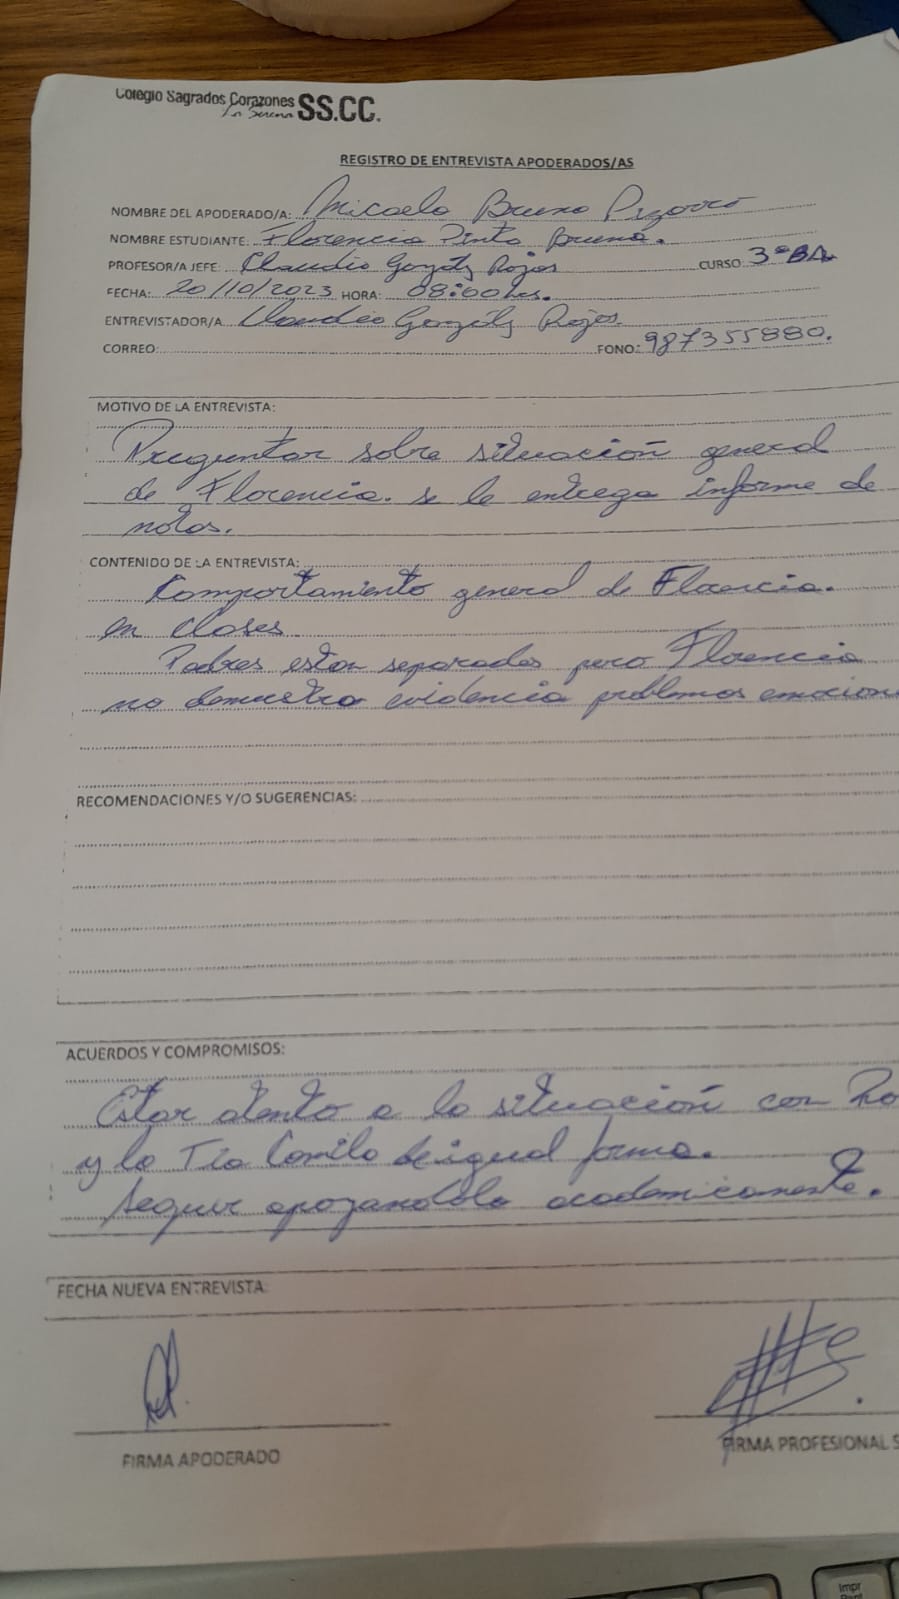 Colegio Sagrados Corazones SS.CC.
La Serena
REGISTRO DE ENTREVISTA APODERADOS/AS
NOMBRE DEL APODERADO/A: Micaela Bruna Pizarro
NOMBRE ESTUDIANTE: Florencia Pinto Bruna.
PROFESOR/A JEFE: Claudio Gonzalez Rojas CURSO: 3°BA
FECHA: 20/10/2023 HORA: 08:00 hrs.
ENTREVISTADOR/A Claudio Gonzalez Rojas
CORREO: FONO: 987355880.
MOTIVO DE LA ENTREVISTA:
Preguntar sobre situación general
de Florencia. se le entrega informe de
notas.
CONTENIDO DE LA ENTREVISTA:
Comportamiento general de Florencia.
en clases
Padres estan separados pero Florencia
no demuestra evidencia problemas emocion
RECOMENDACIONES Y/O SUGERENCIAS:
ACUERDOS Y COMPROMISOS:
Estar atento a la situación con
y la Tia Camila de igual forma.
Seguir apoyandola academicamente.
FECHA NUEVA ENTREVISTA:
FIRMA APODERADO FIRMA PROFESIONAL S
Impr